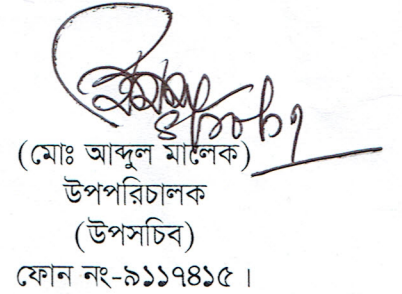 (মোঃ আব্দুল মালেক)
উপপরিচালক
(উপসচিব)
ফোন নং-৯১১৭৪১৫।